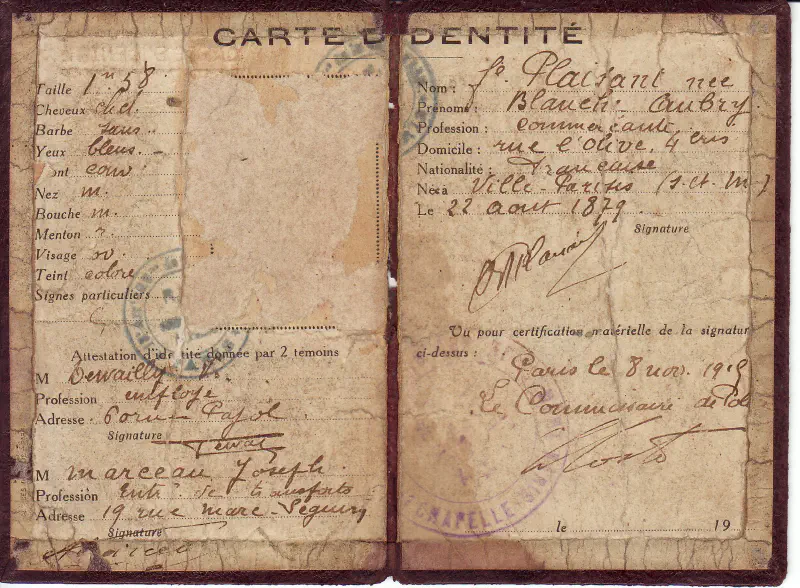 CARTE D'IDENTITÉ
Taille 1m58
Cheveux chât.
Barbe sans
Yeux bleus
Front couv
Nez m.
Bouche m.
Menton r.
Visage ov.
Teint coloré
Signes particuliers
Attestation d'identité donnée par 2 temoins
M Dewailly
Profession employé
Adresse 60 rue Pajol
Signature
Dewai
M Marceau Joseph
Profession Entr. de transports
Adresse 19 rue Marc-Séguin
Signature
Nom : Fe Plaisant née
Prénoms : Blanche Aubry
Profession : commerçante
Domicile : rue l'Olive, 4 bis
Nationalité : Française
Née à Ville-Parisis (S. et M.)
Le 22 août 1879
Signature
Vu pour certification matérielle de la signatur
ci-dessus :
Paris le 8 nov. 191
Le Commissaire de Pol
CHAPELLE
le 19